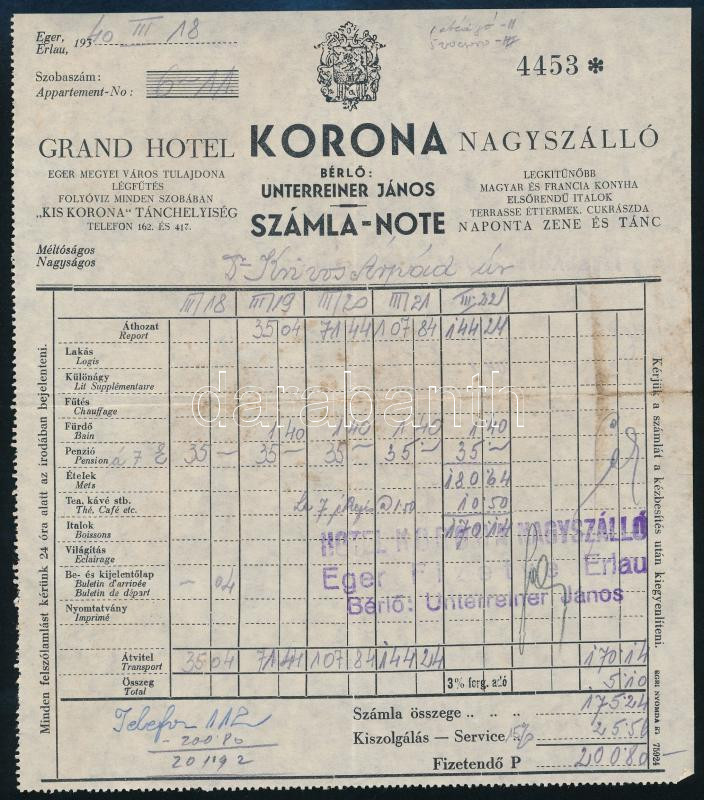 Eger,
Erlau, 1940 III 18
4453 *
Szobaszám:
Appartement-No: 6-11
GRAND HOTEL KORONA NAGYSZÁLLÓ
EGER MEGYEI VÁROS TULAJDONA
LÉGFŰTÉS
FOLYÓVIZ MINDEN SZOBÁBAN
„KIS KORONA" TÁNCHELYISÉG
TELEFON 162. ÉS 417.
BÉRLŐ:
UNTERREINER JÁNOS
SZÁMLA-NOTE
LEGKITŰNŐBB
MAGYAR ÉS FRANCIA KONYHA
ELSŐRENDŰ ITALOK
TERRASSE ÉTTERMEK. CUKRÁSZDA
NAPONTA ZENE ÉS TÁNC
Méltóságos
Nagyságos
Dr Krivos Árpád úr
III/18 III/19 III/20 III/21 III/22
Áthozat 35 04 71 44 107 84 144 24
Report
Lakás
Logis
Különágy
Lit Supplémentaire
Fűtés
Chauffage
Fürdő 1 40 1 40 1 40 1 40
Bain
Penzió 35 - 35 - 35 - 35 - 35 -
Pension à 7 P
Ételek 180 64
Mets
Tea, kávé stb. 7 @ 1.50 10 50
Thé, Café etc.
Italok 170 14
Boissons
Világítás
Eclairage
Be- és kijelentőlap - 04
Buletin d'arrivée
Buletin de départ
Nyomtatvány
Imprimé
HOTEL KORONA NAGYSZÁLLÓ
Eger Erlau
Bérlő: Unterreiner János
Átvitel 35 04 71 44 107 84 144 24 170 14
Transport
Összeg 3% forg. adó 5 10
Total
Számla összege .. .. .. 175 24
Kiszolgálás — Service 15% 25 56
Fizetendő P 200 80 -
Telefon 1.12
- 200.80
201.92
Minden felszólamlást kérünk 24 óra alatt az irodában bejelenteni.
Kérjük a számlát a kézbesítés után kiegyenlíteni.
EGRI NYOMDA RT 75924
darabanth